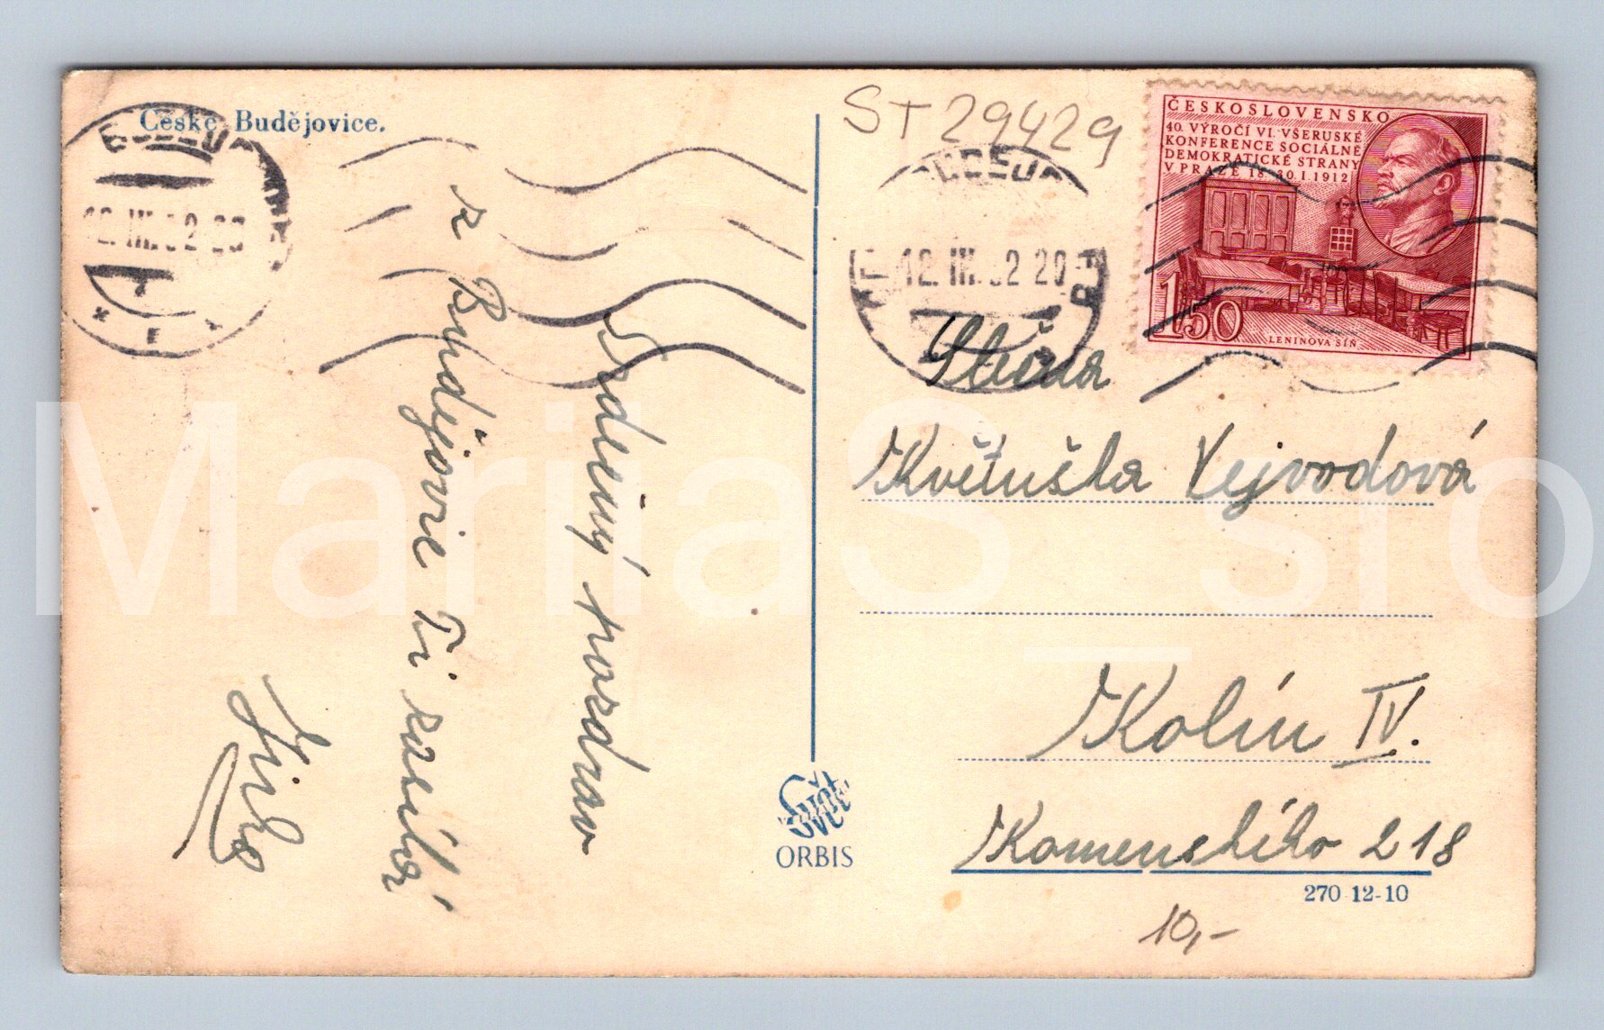 České Budějovice.
Srdečný pozdrav
z Budějovic Ti zasílá
Jirka
ST 29429
12.III.52-20
12.III.52-20
ČESKOSLOVENSKO
40. VÝROČÍ VI. VŠERUSKÉ
KONFERENCE SOCIÁLNĚ
DEMOKRATICKÉ STRANY
V PRAZE 18.-30.I.1912
1,50
LENINOVA SÍŇ
Slečna
Květuška Vejvodová
Kolín IV.
Komenského 218
270 12-10
10,-
Svět
ORBIS
MariiaS_sro